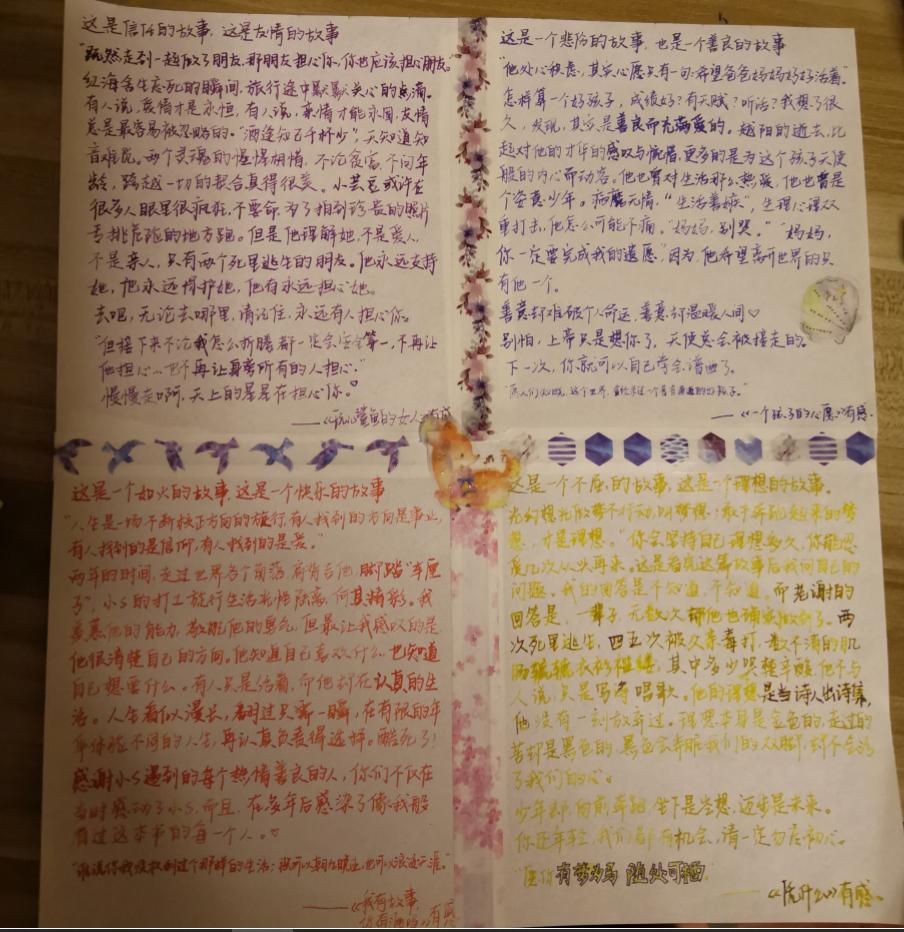 这是信任的故事，这是友情的故事
"既然走到一起做了朋友，那朋友担心你，你也应该担心朋友。"
红海舍生忘死的瞬间，旅行途中默默关心的点滴。
有人说，爱情才是永恒，有人说，亲情才能永固，友情
总是最容易被忽略的。"酒逢知己千杯少"，天知道知
音难觅。两个灵魂的惺惺相惜，不论贫富，不问年
龄，跨越一切的契合真得很美。小芸豆或许在
很多人眼里很疯狂，不要命，为了拍到珍贵的照片
专挑危险的地方跑。但是他理解她，不是爱人，
不是亲人，只有两个死里逃生的朋友。他永远支持
她，他永远保护她，他有永远担心她。
去吧，无论去哪里，请记住，永远有人担心你。
"但接下来不论我怎么折腾，都一定会安全第一，不再让
他担心 不再让身旁所有的人担心"
慢慢走啊，天上的星星在担心你。
——《玩儿鲨鱼的女人》有感
这是一个悲伤的故事，也是一个善良的故事
"他处心积虑，其实心愿只有一句：希望爸爸妈妈好好活着"。
怎样算一个好孩子，成绩好？有天赋？听话？我想了很
久，发现，其实是善良而充满爱的。越阳的逝去，比
起对他的才华的感叹与惋惜，更多的是为这个孩子天使
般的内心而动容。他也曾对生活那么热爱，他也曾是
个姿意少年。病魔无情，"生活善嫉"，生理心理双
重打击，他怎么可能不痛。"妈妈，别哭。""妈妈，
你一定要完成我的遗愿"因为，他希望离开世界的只
有他一个。
善意却难破个人命运，善意却温暖人间♡
别怕，上帝只是想你了，天使总会被接走的。
下一次，你就可以自己学会谱曲了。
——《一个孩子的心愿》有感
这是一个如火的故事，这是一个快乐的故事
"人生是一场不断校正方向的旅行，有人找到的方向是事业，
有人找到的是信仰，有人找到的是爱。"
两年的时间，走过世界各个角落，肩背吉他，脚踏"半厘
子"，小S的打工旅行生活光怪陆离，何其精彩。我
羡慕他的能力，敬佩他的勇气，但最让我感叹的是
他很清楚自己的方向，他知道自己喜欢什么，也知道
自己想要什么。有人只是活着，而他却在认真的生
活。人生看似漫长，看过只需一瞬，在有限的年
华体验不同的人生，再认真负责得选择。酷死了！
感谢小S遇到的每个热情善良的人，你们不仅在
当时感动了小S，而且，在多年后感染了像我般
看过这本书的每一个人。♡
"谁说你我没权利过上那样的生活：既可以朝九晚五，也可以浪迹天涯。"
——《我有故事，
你有酒吗》有感
这是一个不屈的故事，这是一个理想的故事。
光幻想光做梦不行动，叫梦想；敢于奔跑起来的梦
想，才是理想。"你会坚持自己理想多久，你能忍
受几次从头再来。这是看完这篇故事后我问自己的
问题。我的回答是不知道，不知道。而老谢的
回答是，一辈子，无数次 他也 两
次死里逃生，四五次被欠亲毒打，数不清的饥
肠辘辘衣衫褴褛，其中多少哭 辛酸，他不与
人说，只是写诗唱歌。他的理想是当诗人出诗集，
他没有一刻放弃过。理想本身是金色的，走过的
苦却是黑色的，黑色会弄脏我们的双脚，却不会污
了我们的心。
少年郎，向前奔跑，坐下是空想，迈步是未来。
你还年轻，我们都有机会，请一定勿忘初心。
"愿你有梦为马 随处可栖"
有感